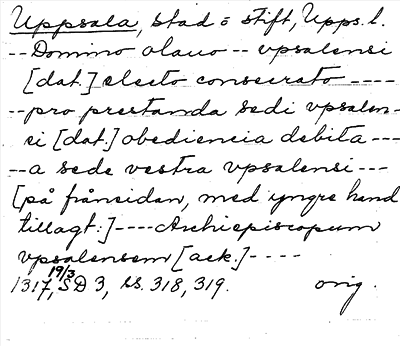 Uppsala, stad o stift, Upps. l.
-- Domino olauo -- vpsalensi
[dat.] electo consecrato ----
-- pro prestanda sedi vpsalen-
si [dat.] obediencia debita ---
-- a sede vestra vpsalensi ---
[på frånsidan, med yngre hand
tillagt:] ---- Archiepiscopum
vpsalensem [ack.] ----
1317 19/3, SD 3, ss. 318, 319. orig.